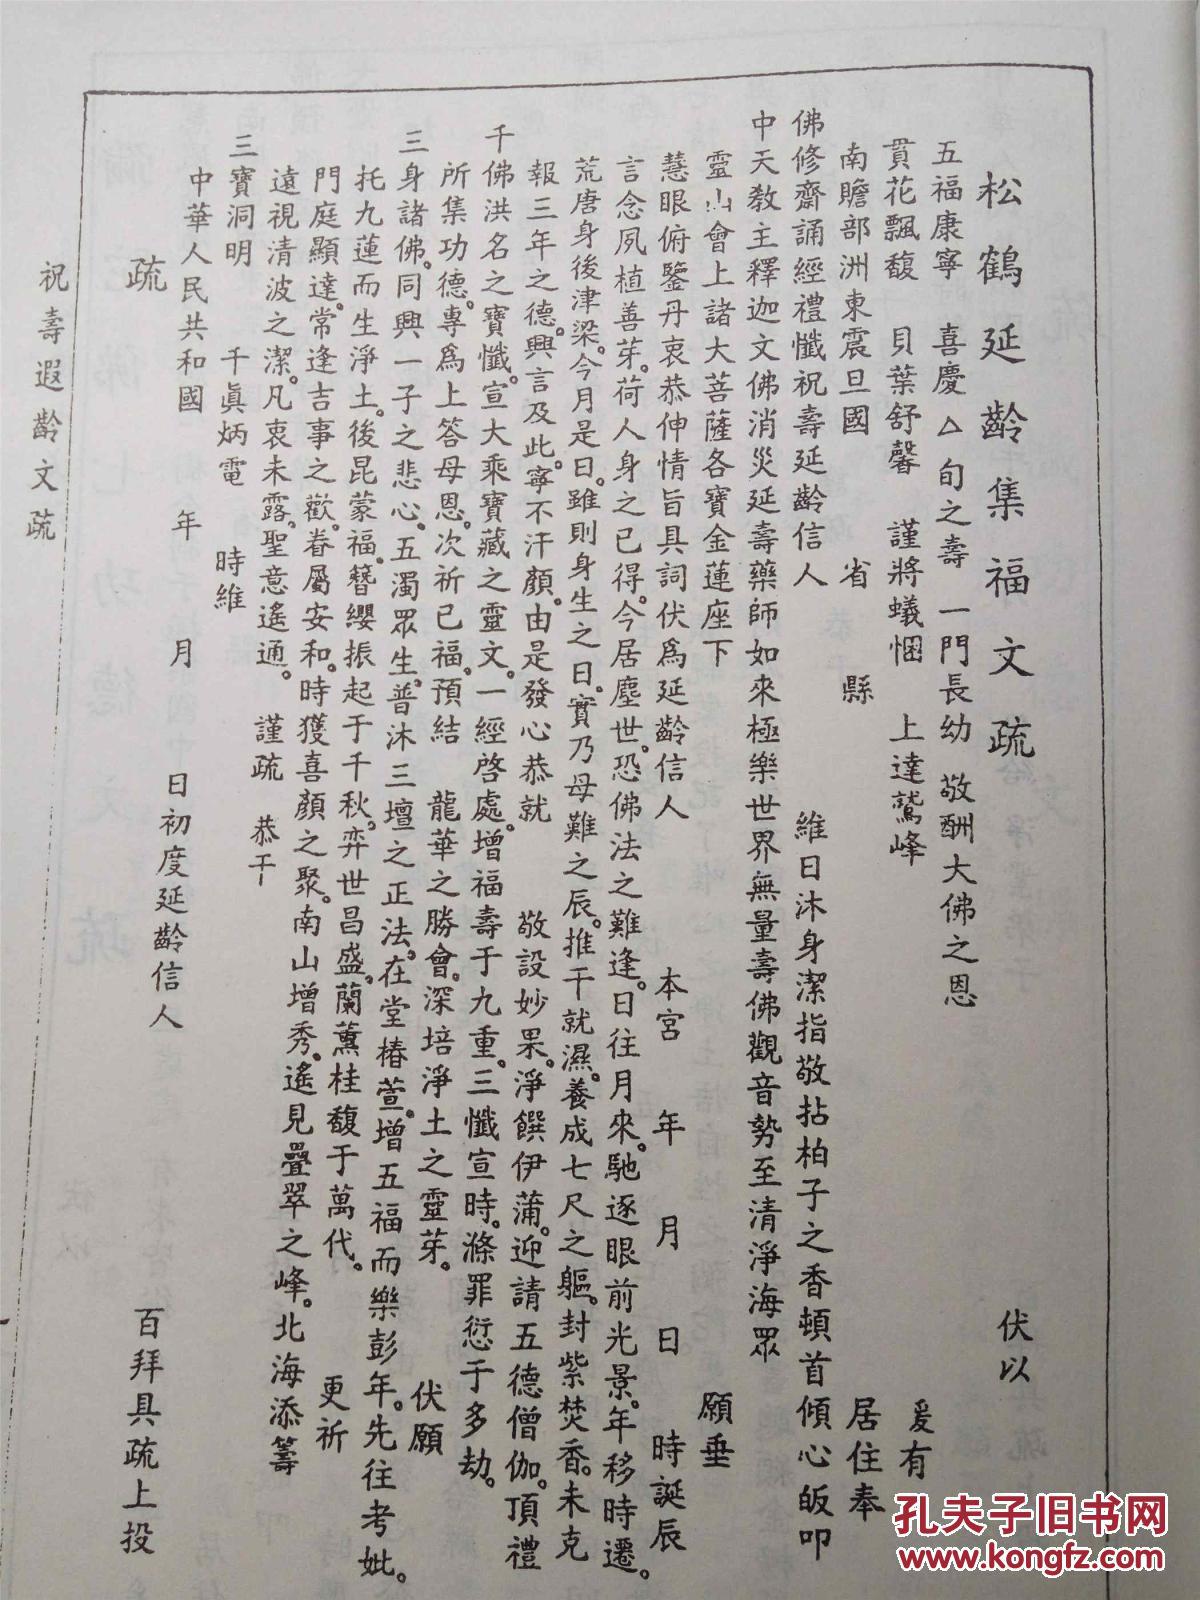 松鶴延齡集福文疏　伏以
五福康寧　喜慶△旬之壽　一門長幼　敬酬大佛之恩
貫花飄馥　貝葉舒馨　謹將蟻悃　上達鷲峰　爰有
南贍部洲東震旦國　省　縣　居住奉
佛修齋誦經禮懺祝壽延齡信人　維日沐身潔指敬拈柏子之香頓首傾心皈叩
中天敎主釋迦文佛消災延壽藥師如來極樂世界無量壽佛觀音勢至清淨海眾
靈山會上諸大菩薩各寶金蓮座下　願垂
慧眼俯鑒丹衷恭伸情旨具詞伏爲延齡信人　本宮　年　月　日　時誕辰
言念夙植善芽。荷人身之已得。今居塵世。恐佛法之難逢。日往月來。馳逐眼前光景。年移時遷。
荒唐身後津梁。今月是日。雖則身生之日。實乃母難之辰。推干就濕。養成七尺之軀。封紫焚香。未克
報三年之德。興言及此。寧不汗顏。由是發心恭就　敬設妙果。淨饌伊蒲。迎請五德僧伽。頂禮
千佛洪名之寶懺。宣大乘寶藏之靈文。一經啓處。增福壽于九重。三懺宣時。滌罪愆于多劫。
所集功德。專爲上答母恩。次祈已福。預結　龍華之勝會。深培淨土之靈芽。　伏願
三身諸佛。同興一子之悲心。五濁眾生。普沐三壇之正法。在堂椿萱。增五福而樂彭年。先往考妣。
托九蓮而生淨土。後昆蒙福。簪纓振起于千秋。弈世昌盛。蘭薰桂馥于萬代。　更祈
門庭顯達。常逢吉事之歡。眷屬安和。時獲喜顏之聚。南山增秀。遙見疊翠之峰。北海添籌
遠視清波之潔。凡衷未露。聖意遙通。　謹疏　恭干
三寶洞明　千眞炳電　時維
中華人民共和國　年　月　日初度延齡信人　百拜具疏上投
疏
祝壽遐齡文疏
孔夫子旧书网
www.kongfz.com